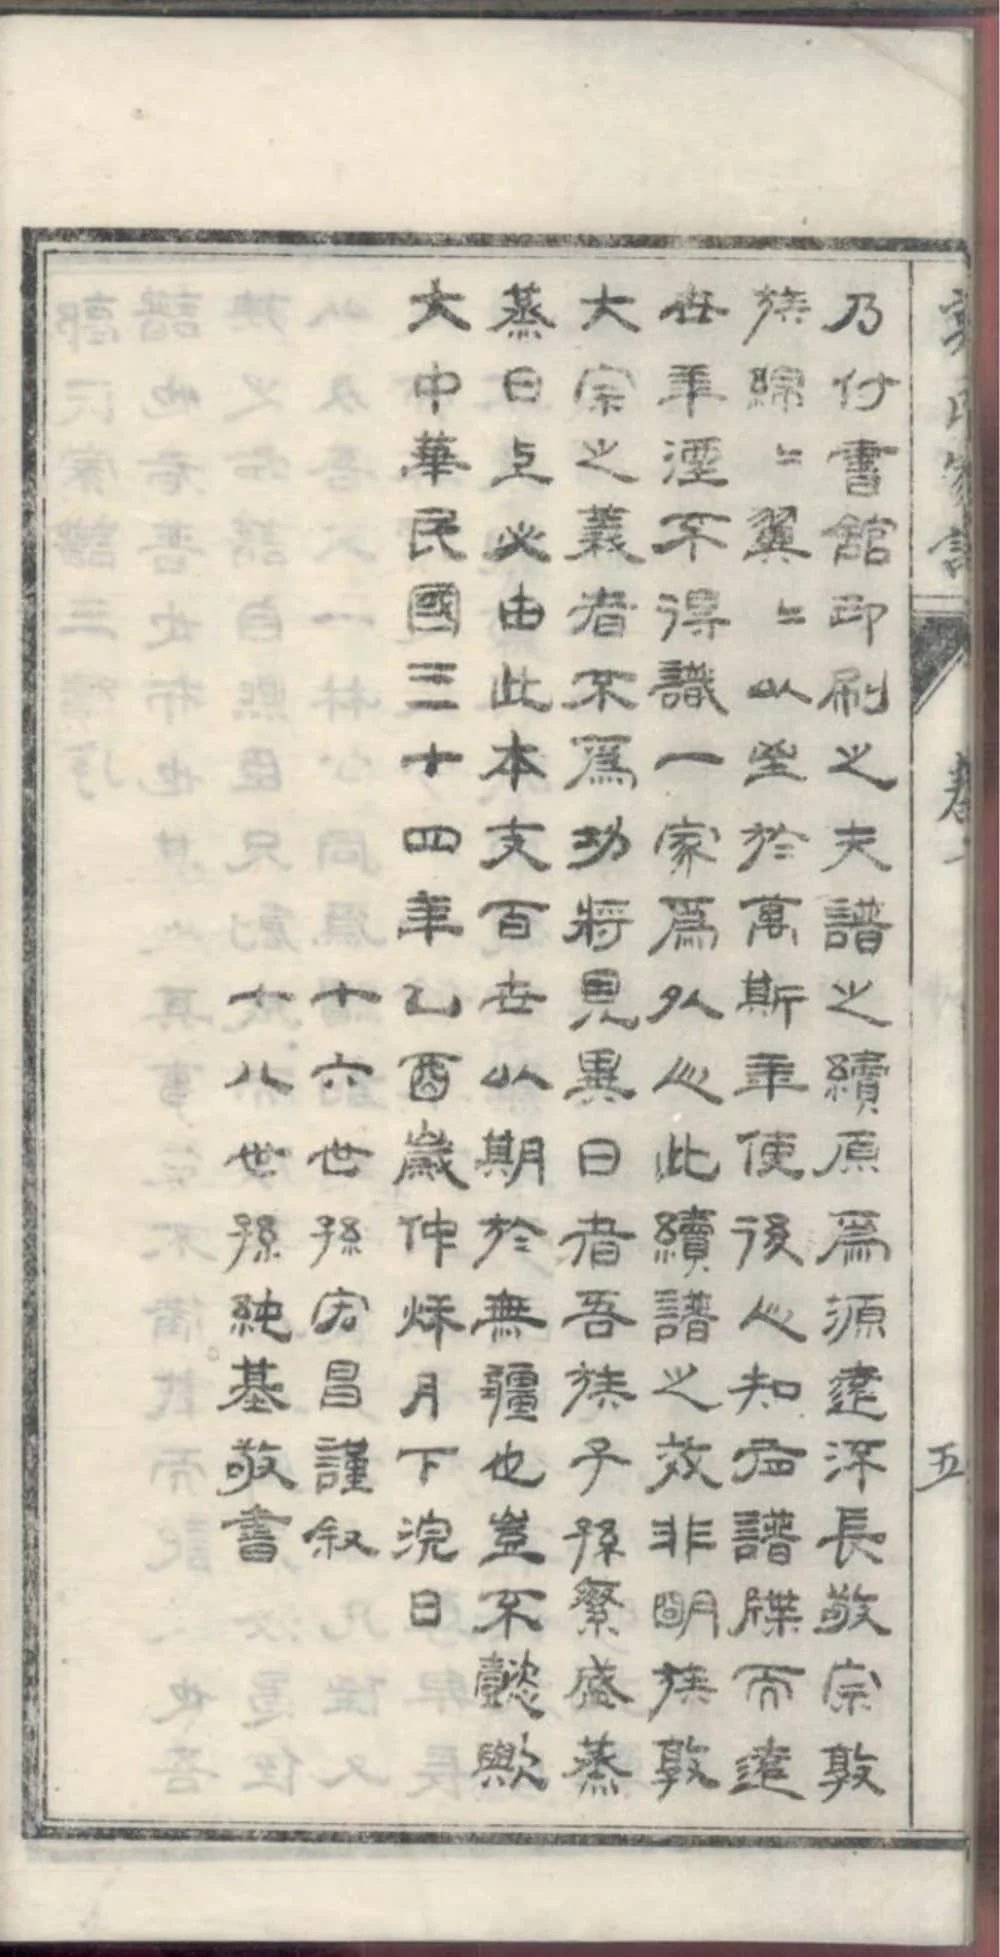 乃付書館印刷之夫譜之續原爲源遠派長敬宗敦
族綿〻翼〻以望於萬斯年使後人知有譜牒而遠
世年湮不得識一家爲外人此續譜之效非明族敦
大宗之義者不爲功將見異日者吾族子孫繁盛蒸
蒸日上必由此本支百世以期於無疆也豈不懿歟
大中華民國三十四年乙酉歲仲秌月下浣日
十六世孫宏昌謹叙
十八世孫純基敬書
氏家譜
卷一
五